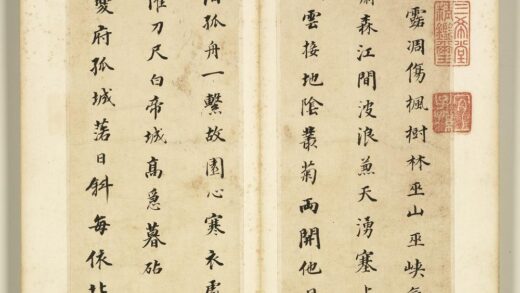 三希堂精鑑璽
宜子孫
露凋傷楓樹林巫山巫峽氣
蕭森江間波浪兼天湧塞上
雲接地陰叢菊兩開他日
孤舟一繫故園心寒衣處
催刀尺白帝城高急暮砧
夔府孤城落日斜每依北